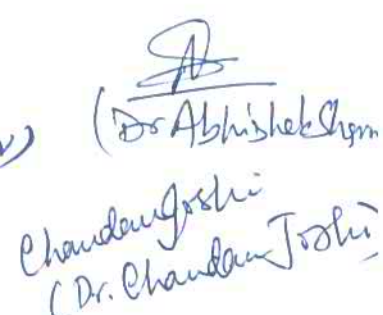 (Dr Abhishek Sharm
Chandan Joshi
(Dr. Chandan Joshi)